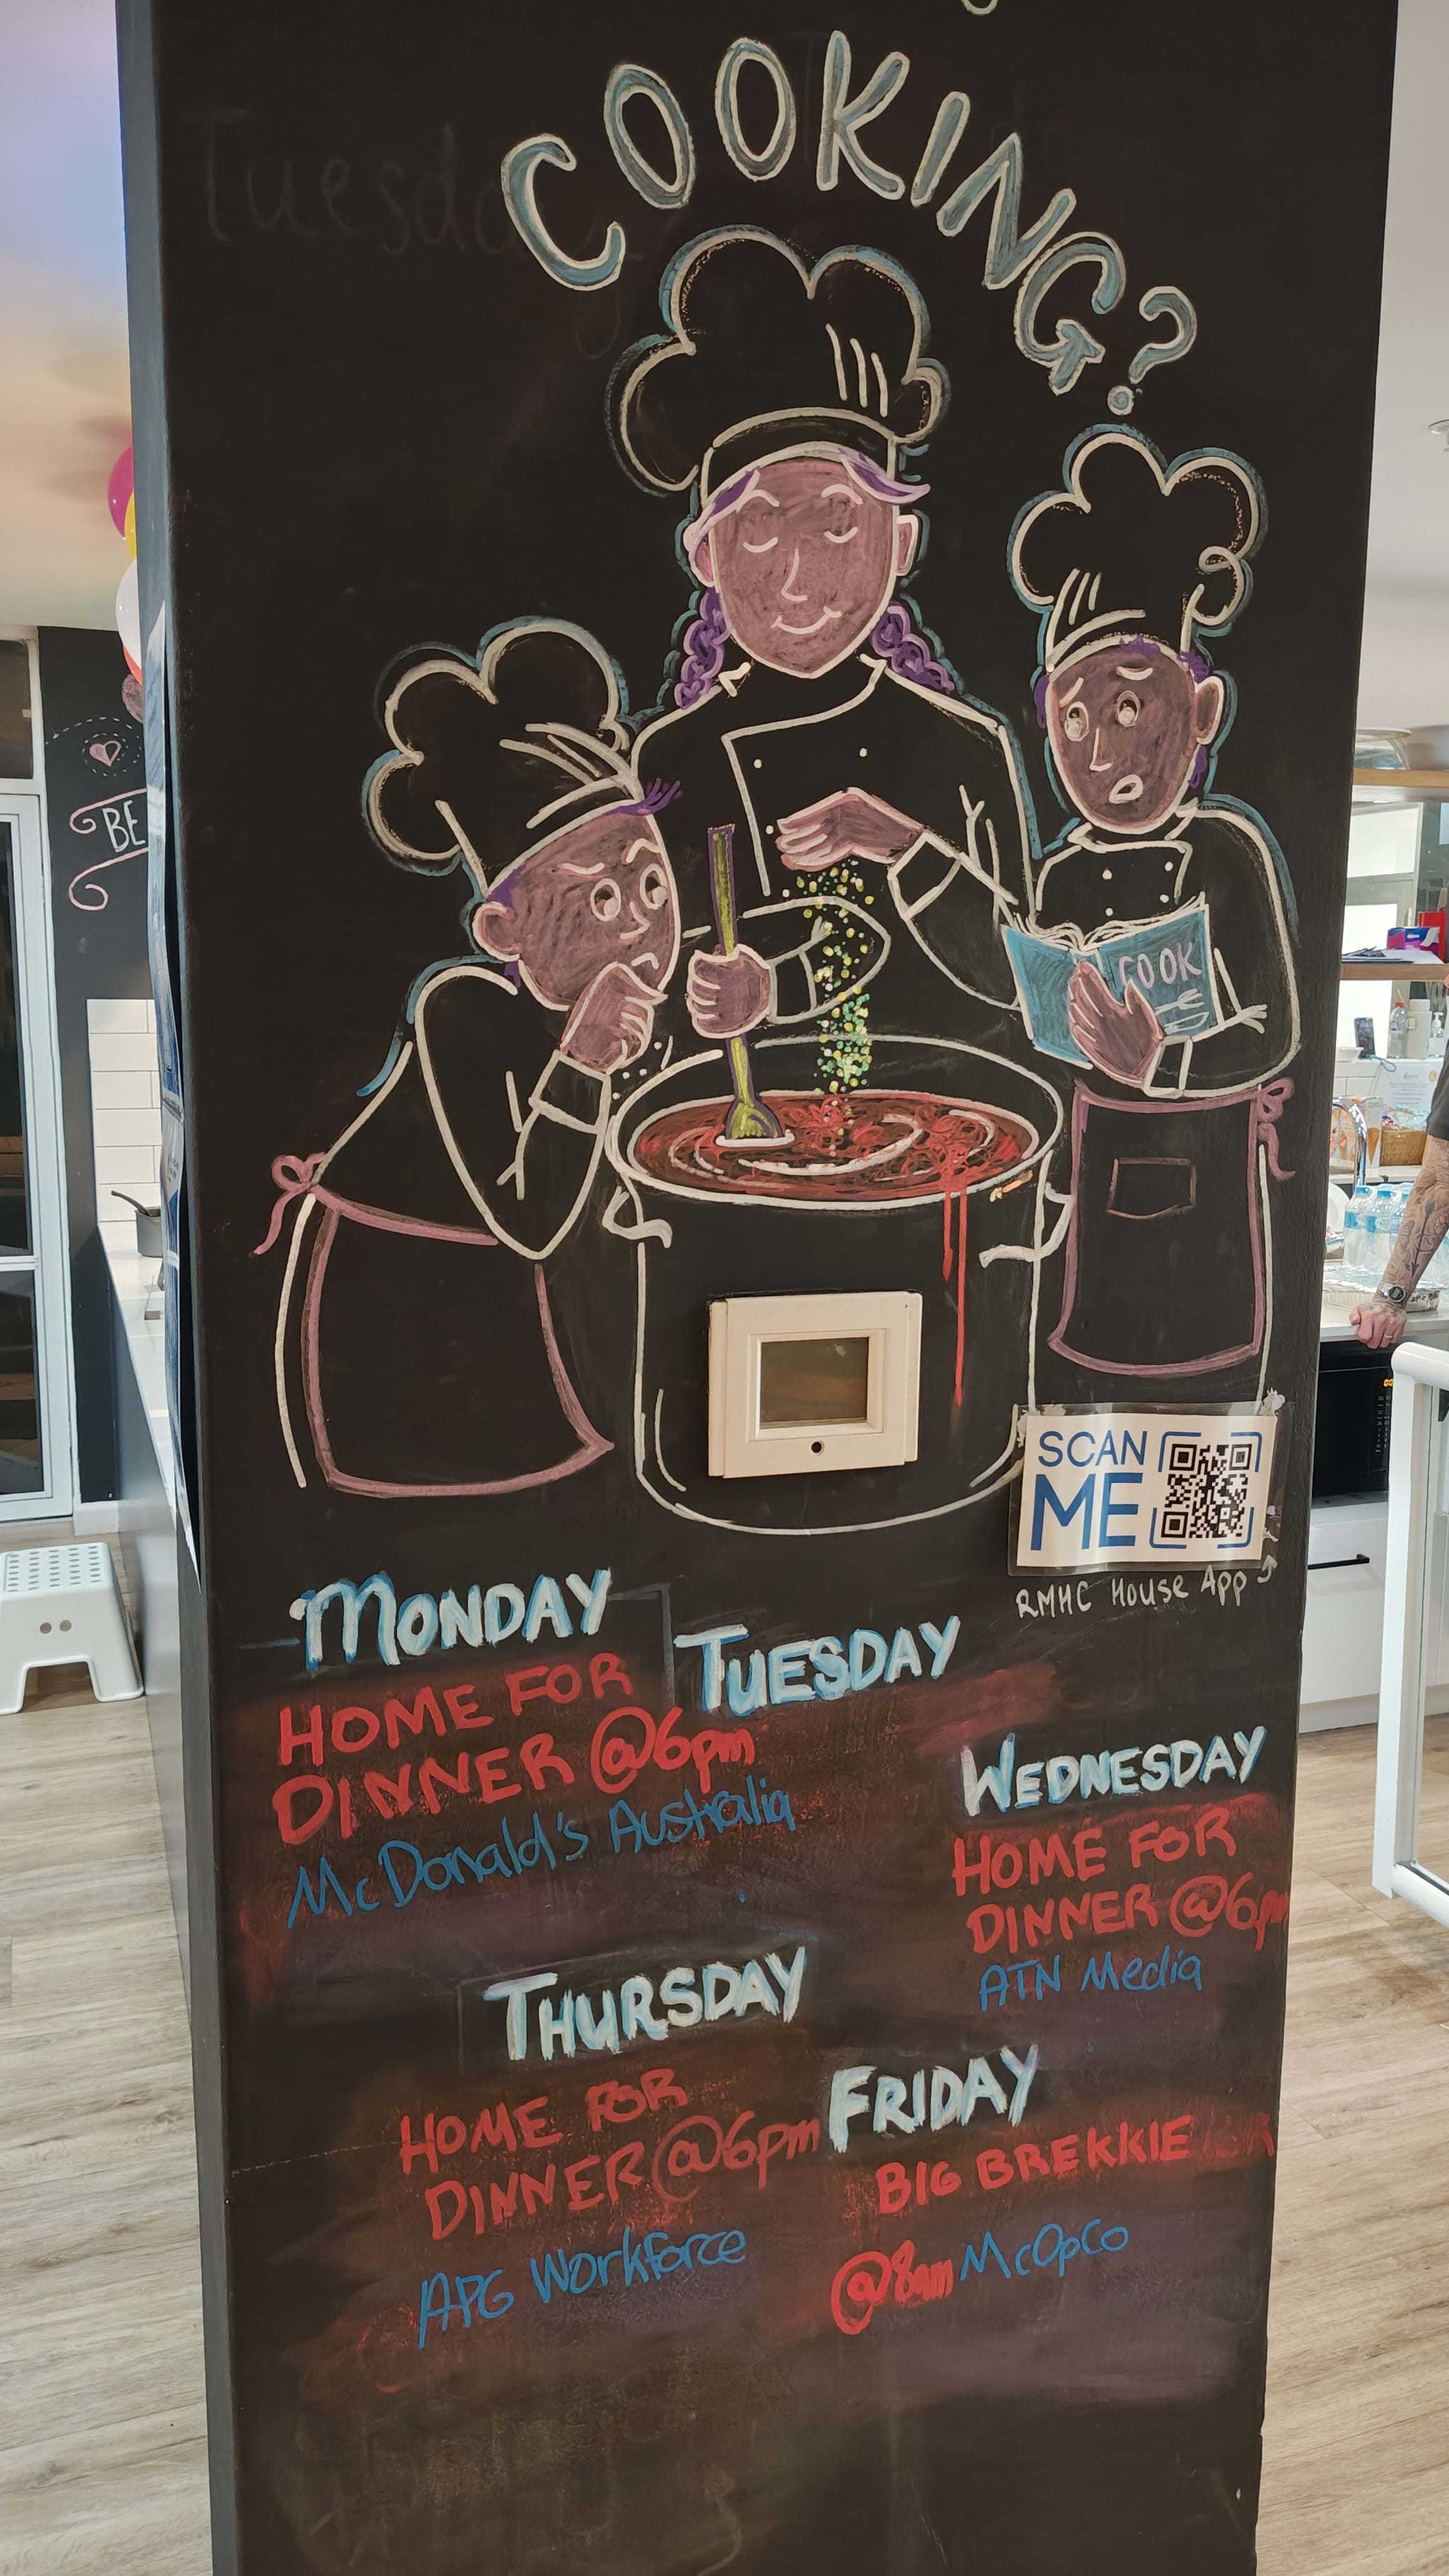 COOKING?
Tuesday
BE
COOK
SCAN
ME
RMHC House App
MONDAY
HOME FOR
DINNER @6pm
McDonald's Australia
TUESDAY
WEDNESDAY
HOME FOR
DINNER @6pm
ATN Media
THURSDAY
HOME FOR
DINNER @6pm
APG Workforce
FRIDAY
BIG BREKKIE
@8am McOpCo